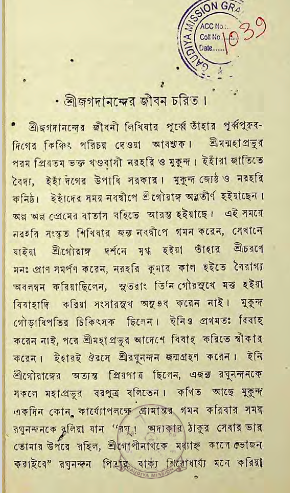 GAUDIYA MISSION GRA
ACC No.
Coll No
Date
1039
শ্রীজগদানন্দের জীবন চরিত।
শ্রীজগদানন্দের জীবনী লিখিবার পূর্ব্বে তাঁহার পূর্ব্বপুরুষ-
দিগের কিঞ্চিৎ পরিচয় দেওয়া আবশ্যক। শ্রীমন্মহাপ্রভুর
পরম প্রিয়তম ভক্ত খণ্ডবাসী নরহরি ও মুকুন্দ। ইহাঁরা জাতিতে
বৈদ্য, ইহাঁদিগের উপাধি সরকার। মুকুন্দ জ্যেষ্ঠ ও নরহরি
কনিষ্ঠ। ইহাঁদের সময় নবদ্বীপে শ্রীগৌরাঙ্গ অবতীর্ণ হইয়াছেন।
অল্প অল্প প্রেমের বাতাস বহিতে আরম্ভ হইয়াছে। এই সময়ে
নরহরি সংস্কৃত শিখিবার জন্ত নবদ্বীপে গমন করেন, সেখানে
যাইয়া শ্রীগৌরাঙ্গ দর্শনে মুগ্ধ হইয়া তাঁহার শ্রীচরণে
মনঃ প্রাণ সমর্পণ করেন, নরহরি কুমার কাল হইতে বৈরাগ্য
অবলম্বন করিয়াছিলেন, সুতরাং তিনি গৌরসুখে মত্ত হইয়া
বিবাহাদি করিয়া সংসারসুখ অনুভব করেন নাই। মুকুন্দ
গৌড়াধিপতির চিকিৎসক ছিলেন। ইনিও প্রথমতঃ বিবাহ
করেন নাই, পরে শ্রীমহাপ্রভুর আদেশে বিবাহ করিতে স্বীকার
করেন। ইহারই ঔরসে শ্রীরঘুনন্দন জন্মগ্রহণ করেন। ইনি
শ্রীগৌরাঙ্গের অত্যন্ত প্রিয়পাত্র ছিলেন, এজন্ত রঘুনন্দনকে
সকলে মহাপ্রভুর বরপুত্র বলিতেন। কথিত আছে মুকুন্দ
একদিন কোন কার্য্যোপলক্ষে গ্রামান্তর গমন করিবার সময়
রঘুনন্দনকে বলিয়া যান "রঘু! অদ্যকার ঠাকুর সেবার ভার
তোমার উপরে রহিল, শ্রীগোপীনাথকে মধ্যাহ্ন কালে ভোজন
করাইবে" রঘুনন্দন পিতার বাক্য শিরোধার্য্য মনে করিয়া